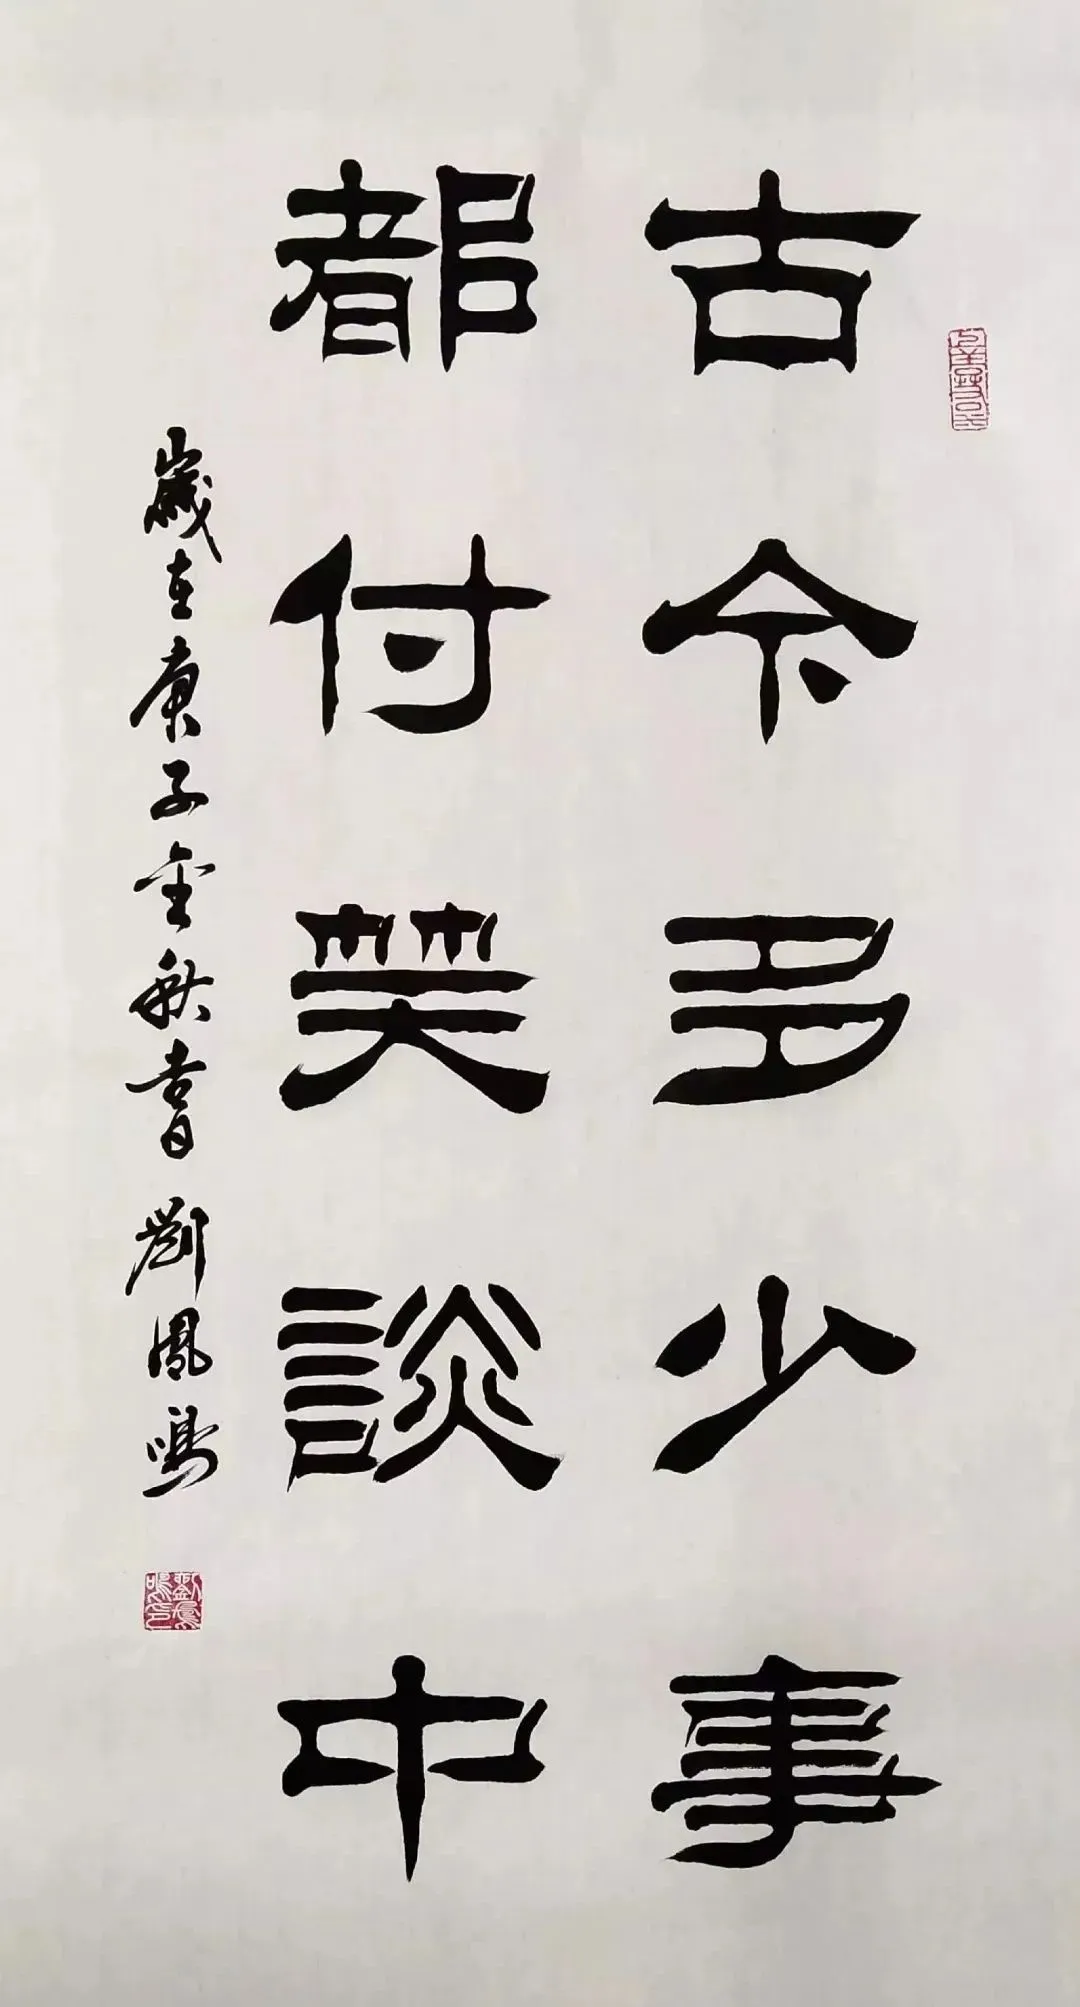 古今多少事
都付笑談中
歲在庚子金秋書劉鳳鳴
劉鳳鳴印